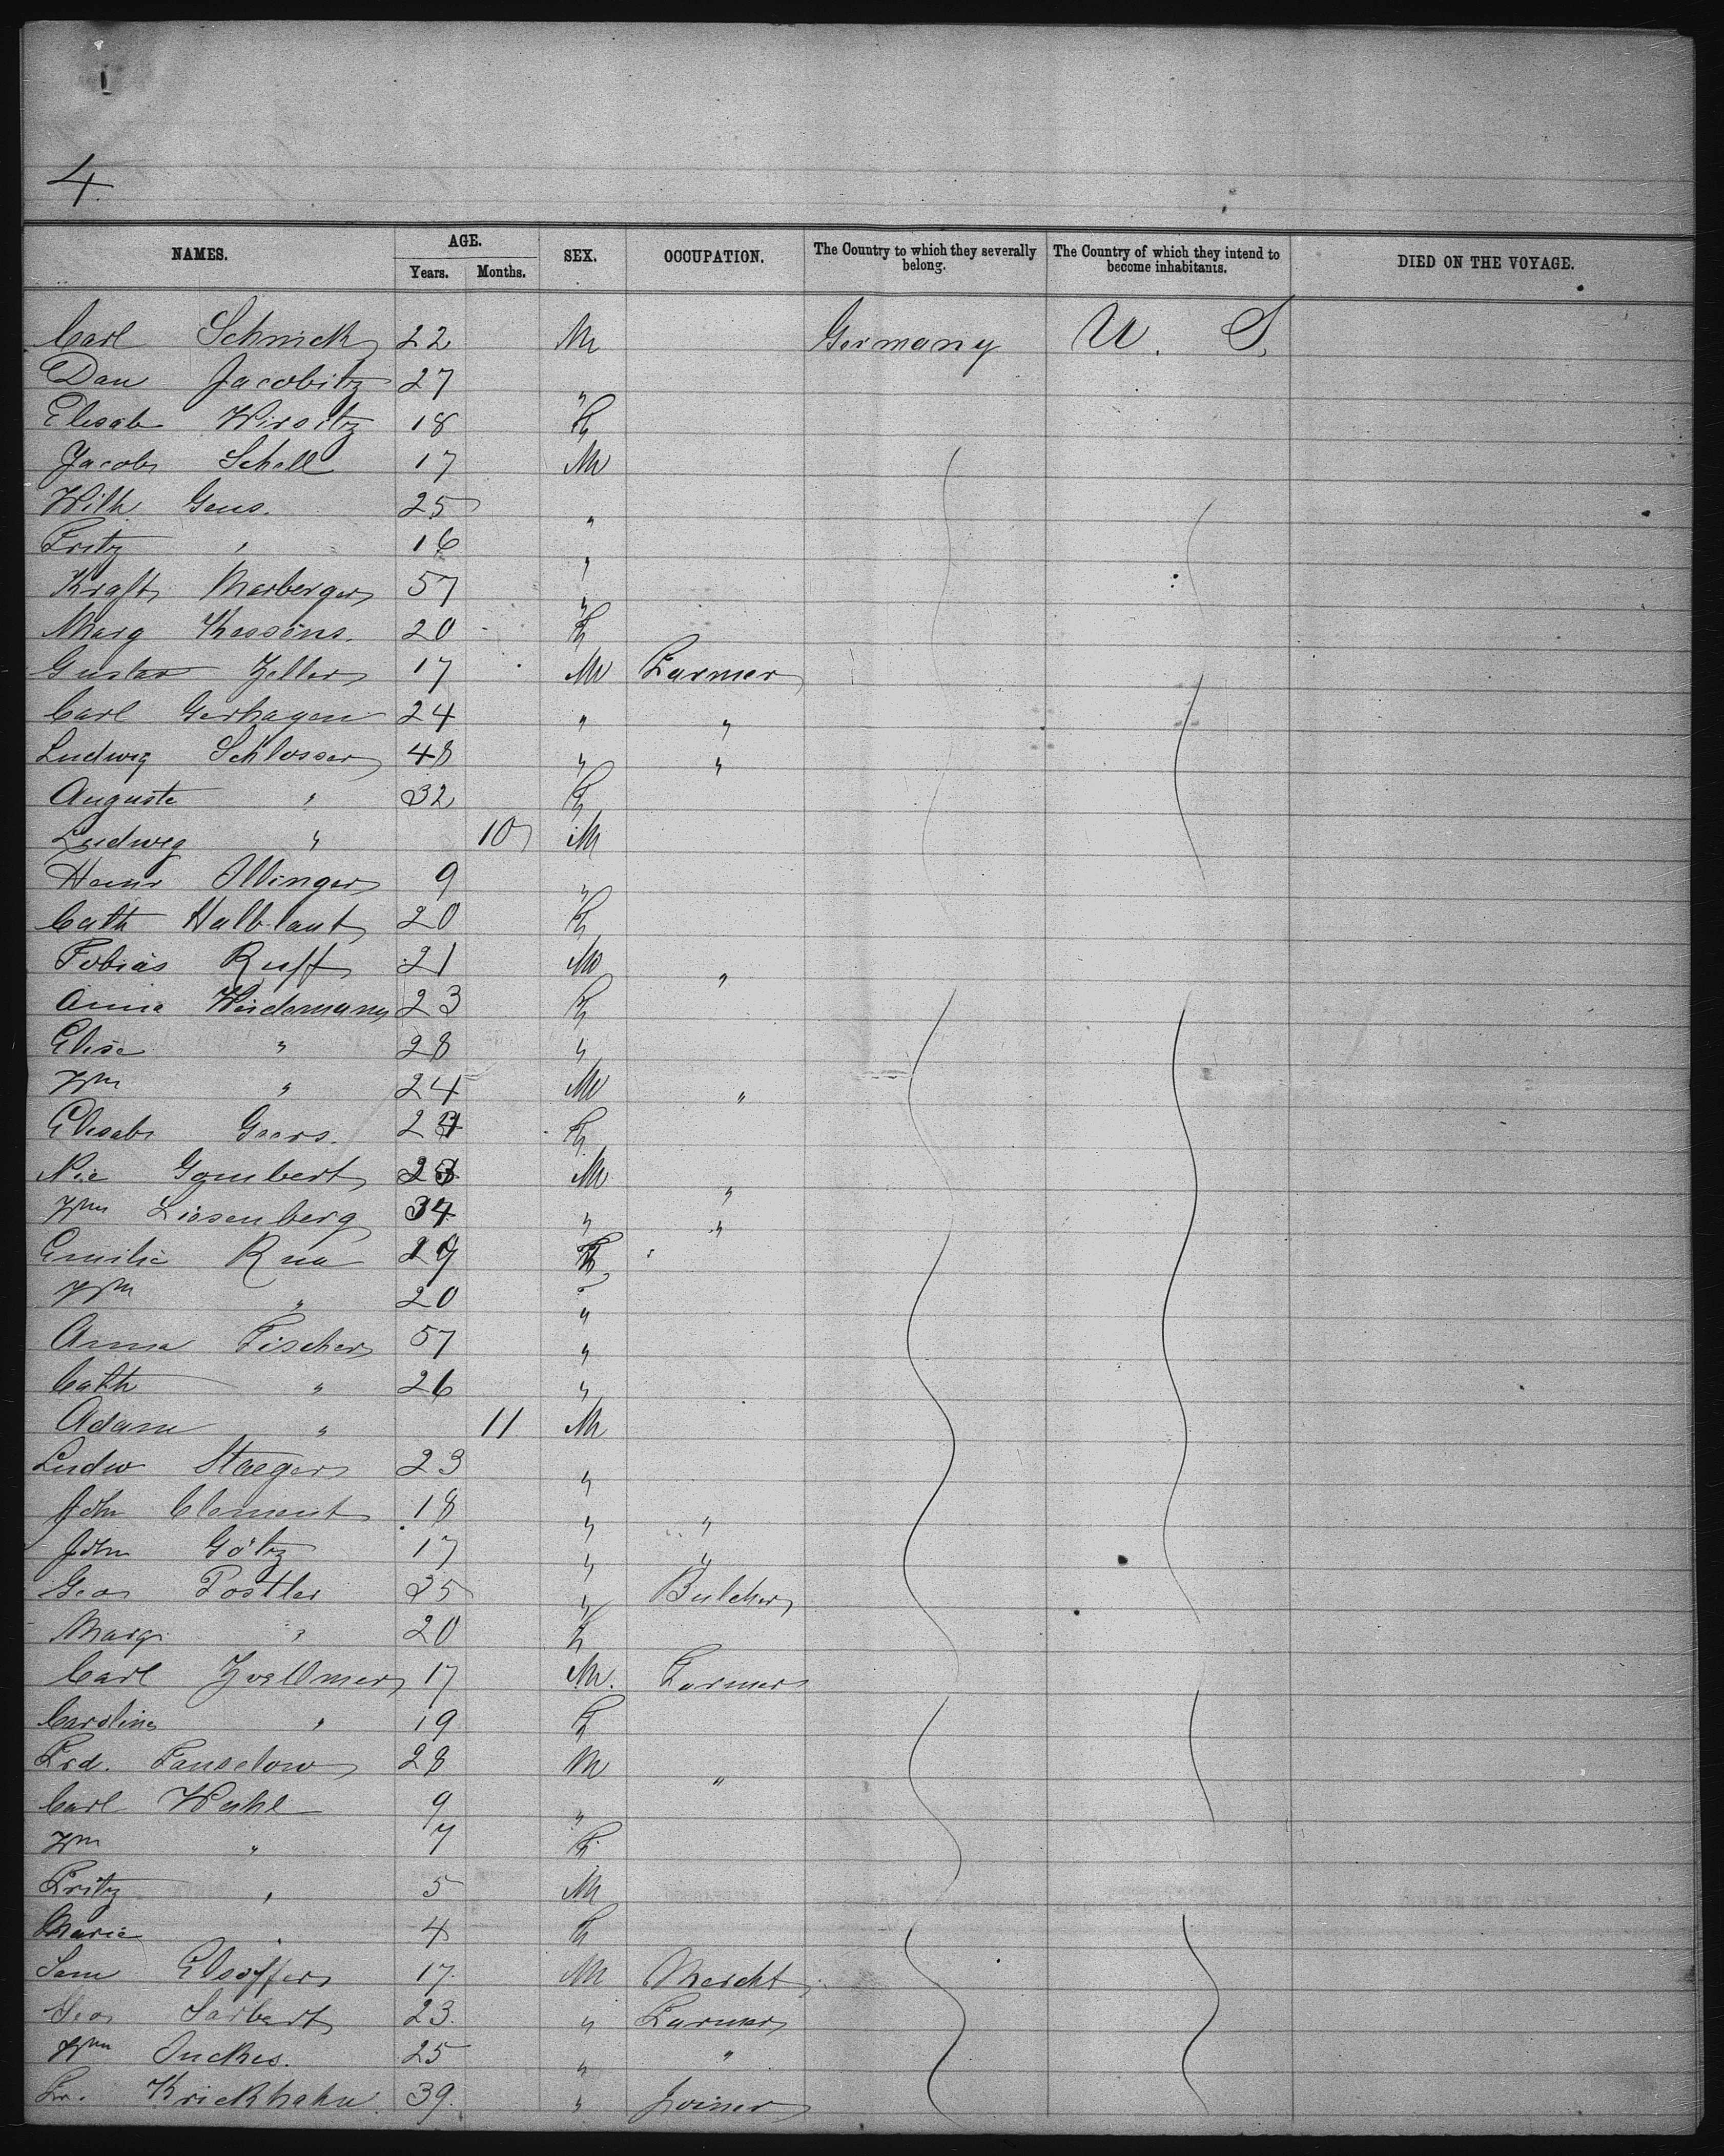 4.
NAMES. AGE. SEX. OCCUPATION. The Country to which they severally belong. The Country of which they intend to become inhabitants. DIED ON THE VOYAGE.
Years. Months.
Carl Schnick 22 M Germany U. S.
Dan Jacobitz 27 "
Elisab Wirsitz 18 F
Jacob Schell 17 M
Wilh Gens. 25 "
Fritz " 16 "
Kraft Marberger 57 "
Marg Kessens. 20 F
Gustav Zeller 17 M Farmer
Carl Gerhagen 24 " "
Ludwig Schlosser 48 " "
Auguste " 32 F
Ludwig " 10 M
Heinr Ollinger 9 "
Cath Halblaut 20 F
Tobias Ruff 21 M "
Anna Weidemann 23 F
Elise " 28 "
Wm " 24 M "
Elisab Geers. F
Nic Gombert M "
Wm Liesenberg 34 " "
Emilie Rua F
Wm " 20 "
Anna Fischer 57 "
Cath " 26 "
Adam " 11 M
Ludw Staeger 23 "
John Clement 18 " "
John Götz 17 " "
Geo Postler 25 " Butcher
Marg " 20 F
Carl Zvellmer 17 M. Farmer
Caroline " 19 F
Frd. Fanselow 28 M "
Carl Wahl 9 "
Wm " 7 F
Fritz " 5 M
Marie " 4 F
Sam Elsoffer 17. M Mercht.
Geo Sarbert 23. " Farmer
Wm Onckes. 25 " "
Fr. Krickhahn 39. " Joiner